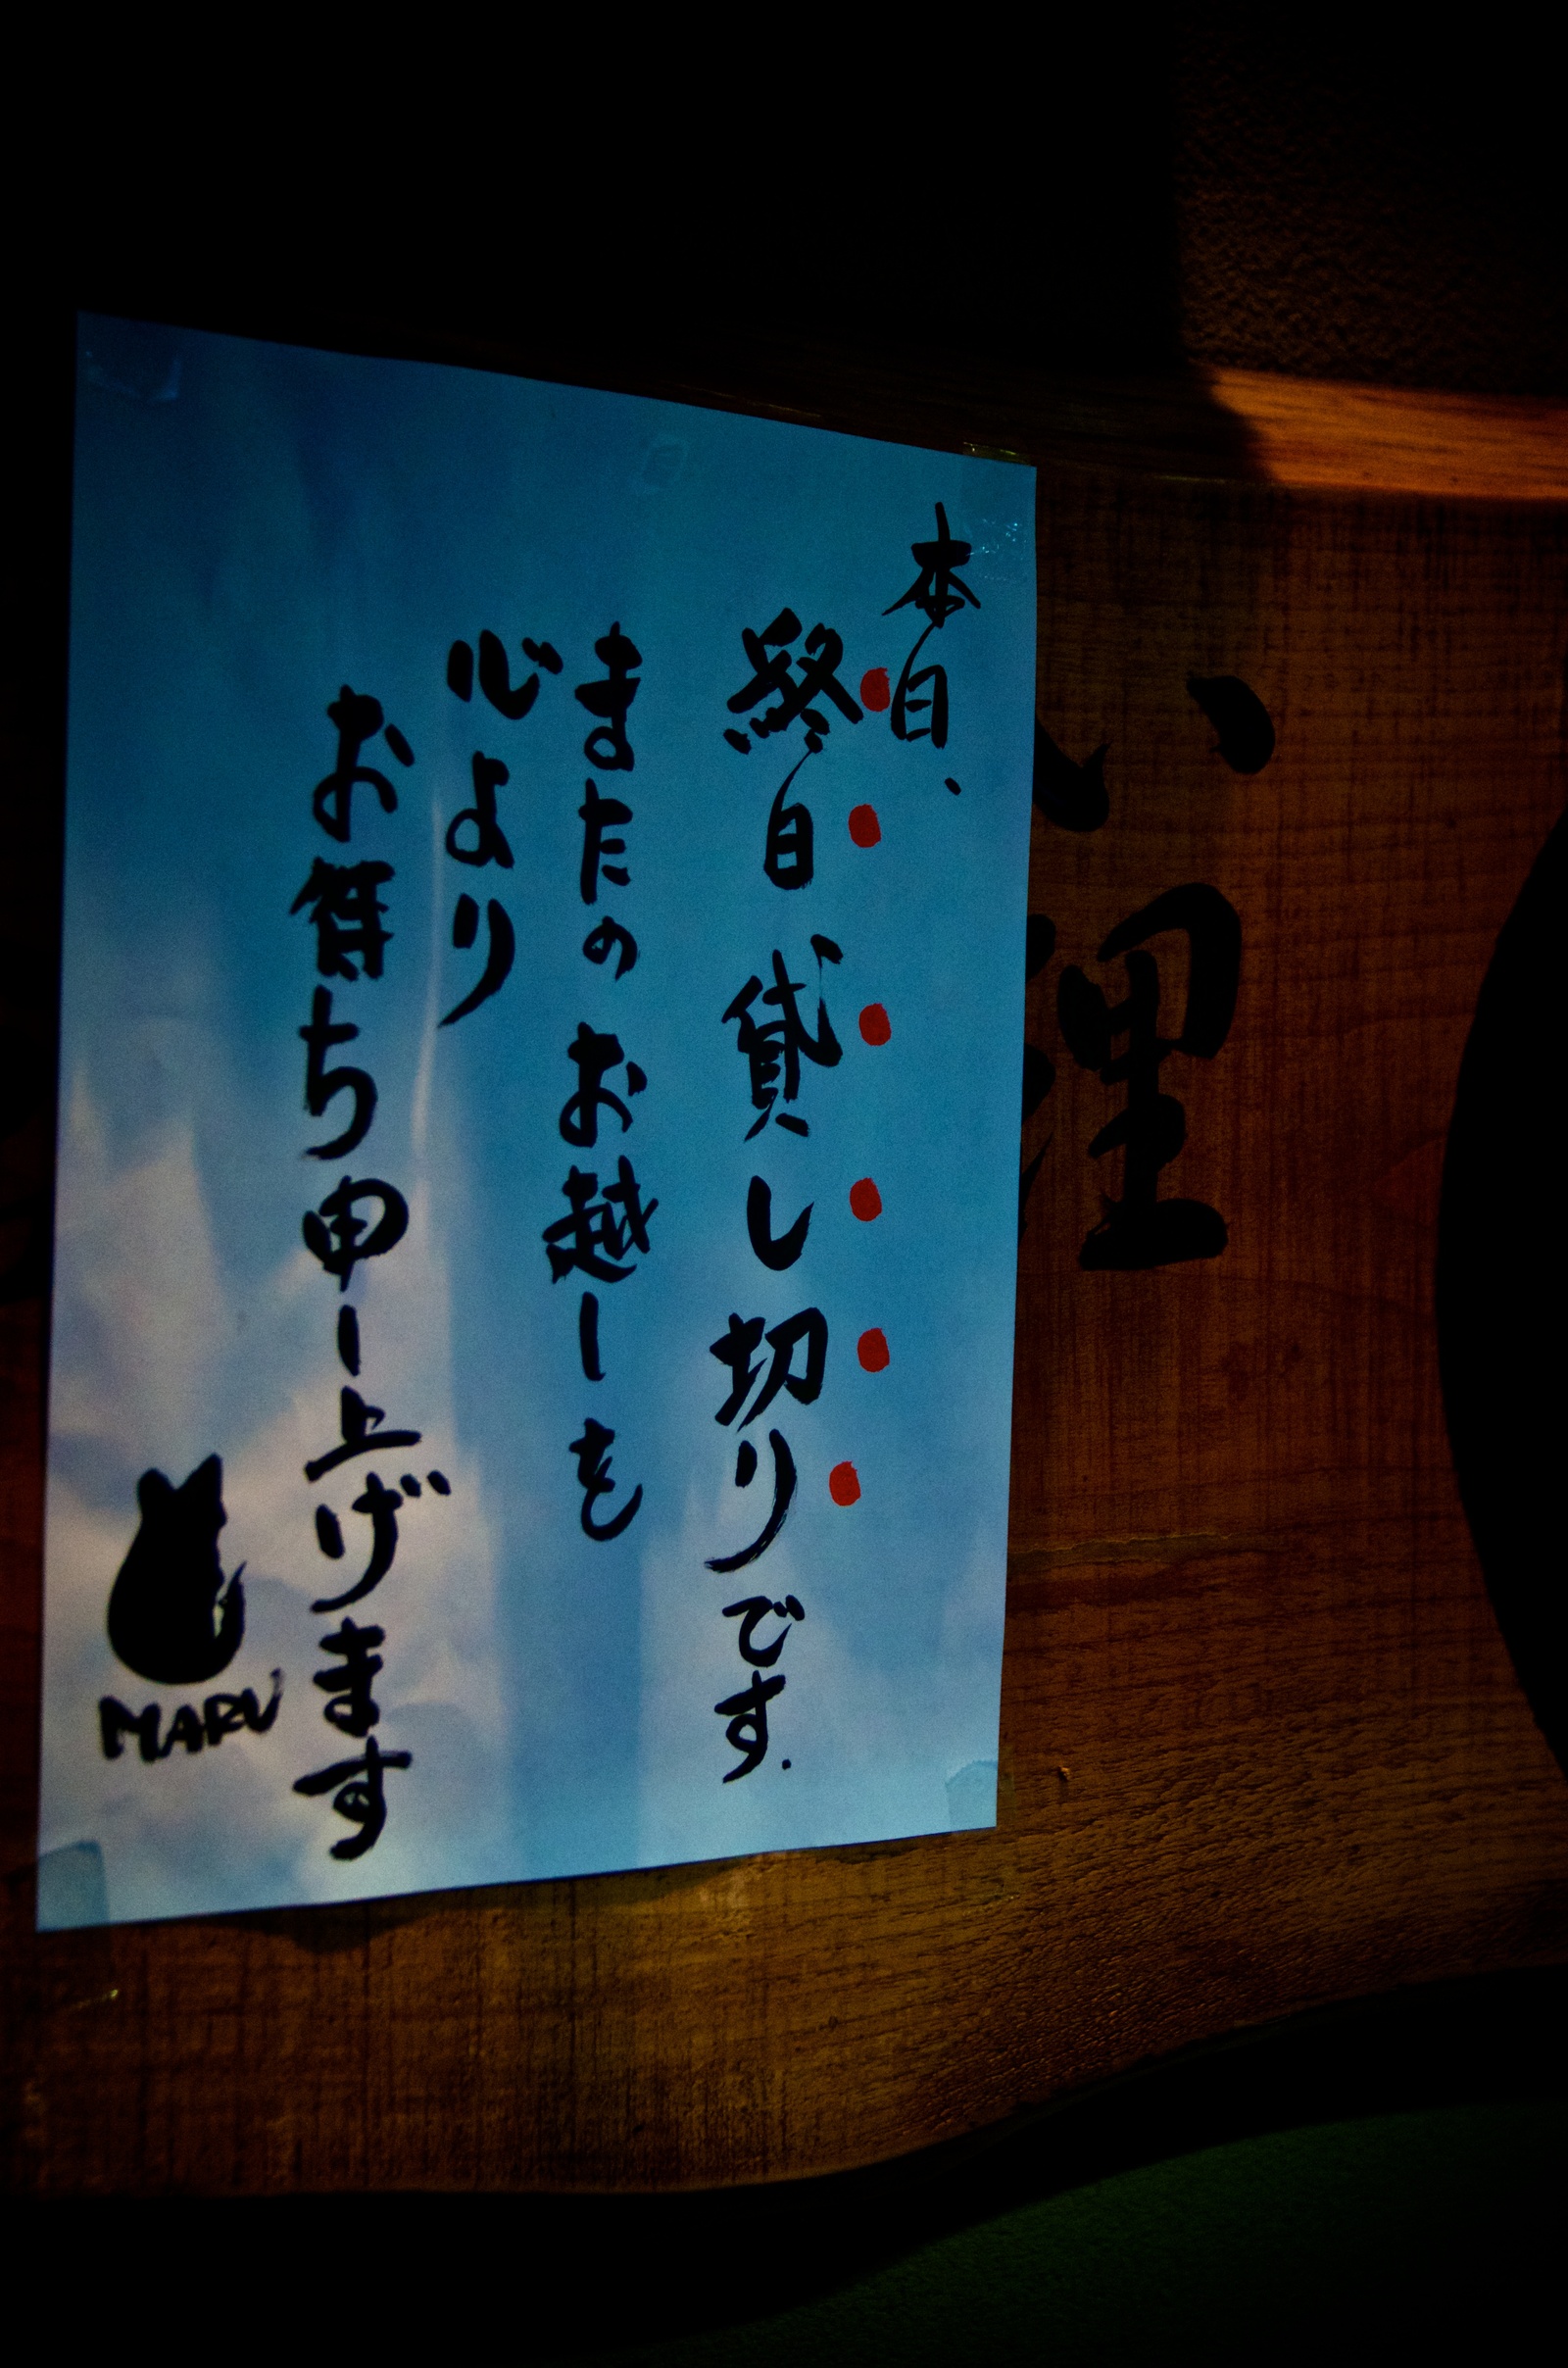 本日、
終日貸し切りです.
またのお越しを
心より
お待ち申し上げます
MARU
理